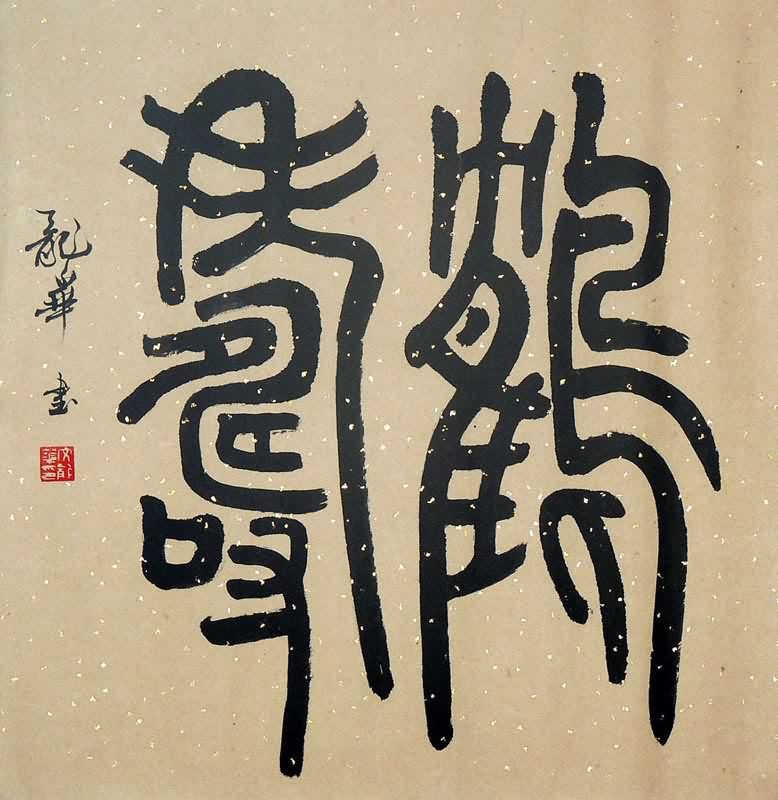 鶴壽
龍華書